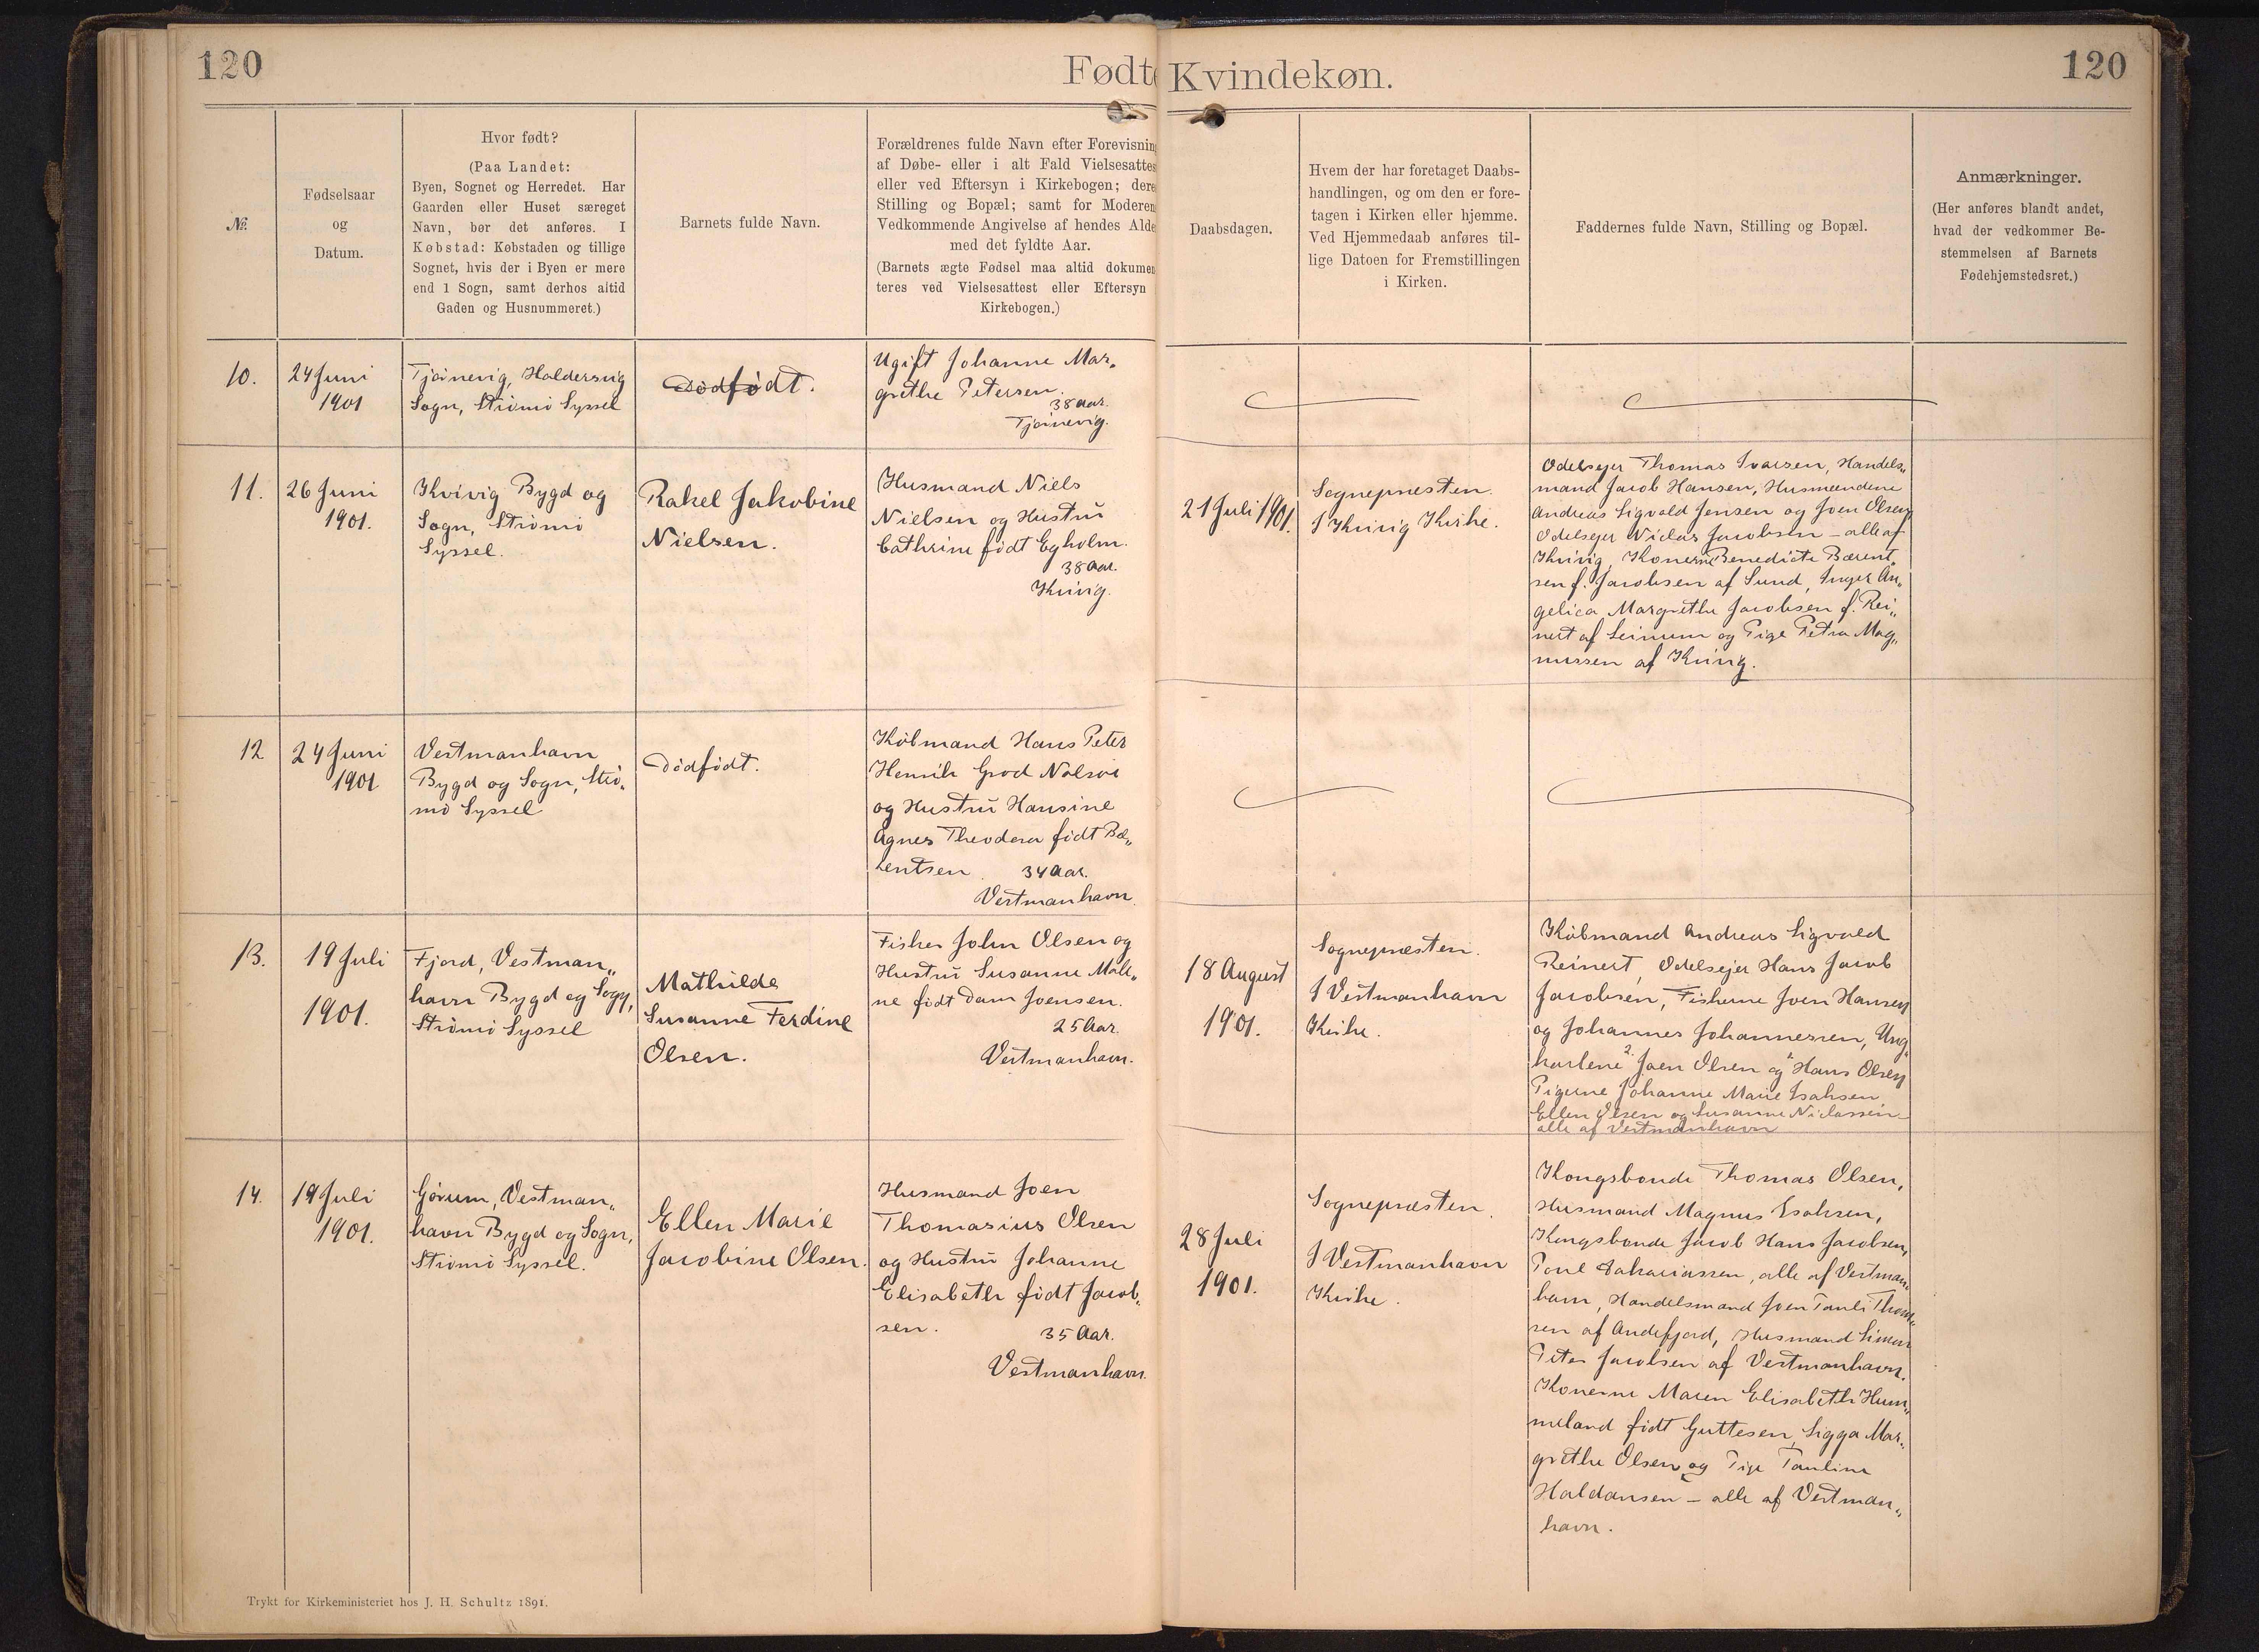 120
Fødte
Kvindekøn.
120
№.
Fødselsaar
og
Datum.
Hvor født?
(Paa Landet:
Byen, Sognet og Herredet. Har
Gaarden eller Huset særeget
Navn, bør det anføres. I
Købstad: Købstaden og tillige
Sognet, hvis der i Byen er mere
end 1 Sogn, samt derhos altid
Gaden og Husnummeret.)
Barnets fulde Navn.
Forældrenes fulde Navn efter Forevisning
af Døbe- eller i alt Fald Vielsesattes
eller ved Eftersyn i Kirkebogen; dere
Stilling og Bopæl; samt for Moderen
Vedkommende Angivelse af hendes Alde
med det fyldte Aar.
(Barnets ægte Fødsel maa altid dokumen
teres ved Vielsesattest eller Eftersyn
Kirkebogen.)
Daabsdagen.
Hvem der har foretaget Daabs-
handlingen, og om den er fore-
tagen i Kirken eller hjemme.
Ved Hjemmedaab anføres til-
lige Datoen for Fremstillingen
i Kirken.
Faddernes fulde Navn, Stilling og Bopæl.
Anmærkninger.
(Her anføres blandt andet,
hvad der vedkommer Be-
stemmelsen af Barnets
Fødehjemstedsret.)
10.
24 Juni
1901
Tjørnevig, Haldersvig
Sogn, Strømø Syssel
Dødfødt.
Ugift Johanne Mar„
grethe Petersen.
38 Aar.
Tjørnevig.
11.
26 Juni
1901.
Kvivig Bygd og
Sogn, Strømø
Syssel.
Rakel Jakobine
Nielsen.
Husmand Niels
Nielsen og Hustru
Cathrine født Egholm.
38 Aar.
Kvivig.
21 Juli 1901.
Sognepræsten.
I Kvivig Kirke.
Odelsejer Thomas Ivarsen, Handels„
mand Jacob Hansen, Husmændene
Andreas Sigvald Jensen og Joen Olsen
Odelsejer Niclas Jacobsen – alle af
Kvivig, Konerne Benedicte Bærent„
sen f. Jacobsen af Sund, Inger An„
gelica Margrethe Jacobsen f. Rei„
nert af Leinum og Pige Petra Mag„
nussen af Kvivig.
12
24 Juni
1901
Vestmanhavn
Bygd og Sogn, Strø„
mø Syssel
Dødfødt.
Købmand Hans Peter
Henrik Grod Nolsøe
og Hustru Hansine
Agnes Theodora født Bæ„
rentsen. 34 Aar.
Vestmanhavn.
13.
19 Juli
1901.
Fjord, Vestman„
havn Bygd og Sogn,
Strømø Syssel
Mathilde
Susanne Ferdine
Olsen.
Fisker John Olsen og
Hustru Susanne Male„
ne født Dam Joensen.
25 Aar.
Vestmanhavn.
18 August
1901.
Sognepræsten.
I Vestmanhavn
Kirke.
Købmand Andreas Sigvald
Reinert, Odelsejer Hans Jacob
Jacobsen, Fiskerne Joen Hansen
og Johannes Johannessen, Ung„
karlene 2. Joen Olsen og 1. Hans Olsen
Pigerne Johanne Marie Isaksen
Ellen Olsen og Susanne Niclassen
alle af Vestmanhavn
14.
19 Juli
1901.
Gørum, Vestman„
havn Bygd og Sogn,
Strømø Syssel.
Ellen Marie
Jacobine Olsen.
Husmand Joen
Thomasius Olsen
og Hustru Johanne
Elisabeth født Jacob„
sen. 35 Aar.
Vestmanhavn.
28 Juli
1901.
Sognepræsten.
I Vestmanhavn
Kirke.
Kongsbonde Thomas Olsen,
Husmand Magnus Isaksen,
Kongsbonde Jacob Hans Jacobsen,
Poul Zakariassen, alle af Vestman
havn, Handelsmand Joen Pauli Thom„
sen af Andefjord, Husmand Simon
Peter Jacobsen af Vestmanhavn.
Konerne Maren Elisabeth Hum„
meland født Guttesen, Sigga Mar„
grethe Olsen og Pige Pauline
Haldansen – alle af Vestman„
havn.
Trykt for Kirkeministeriet hos J. H. Schultz 1891.